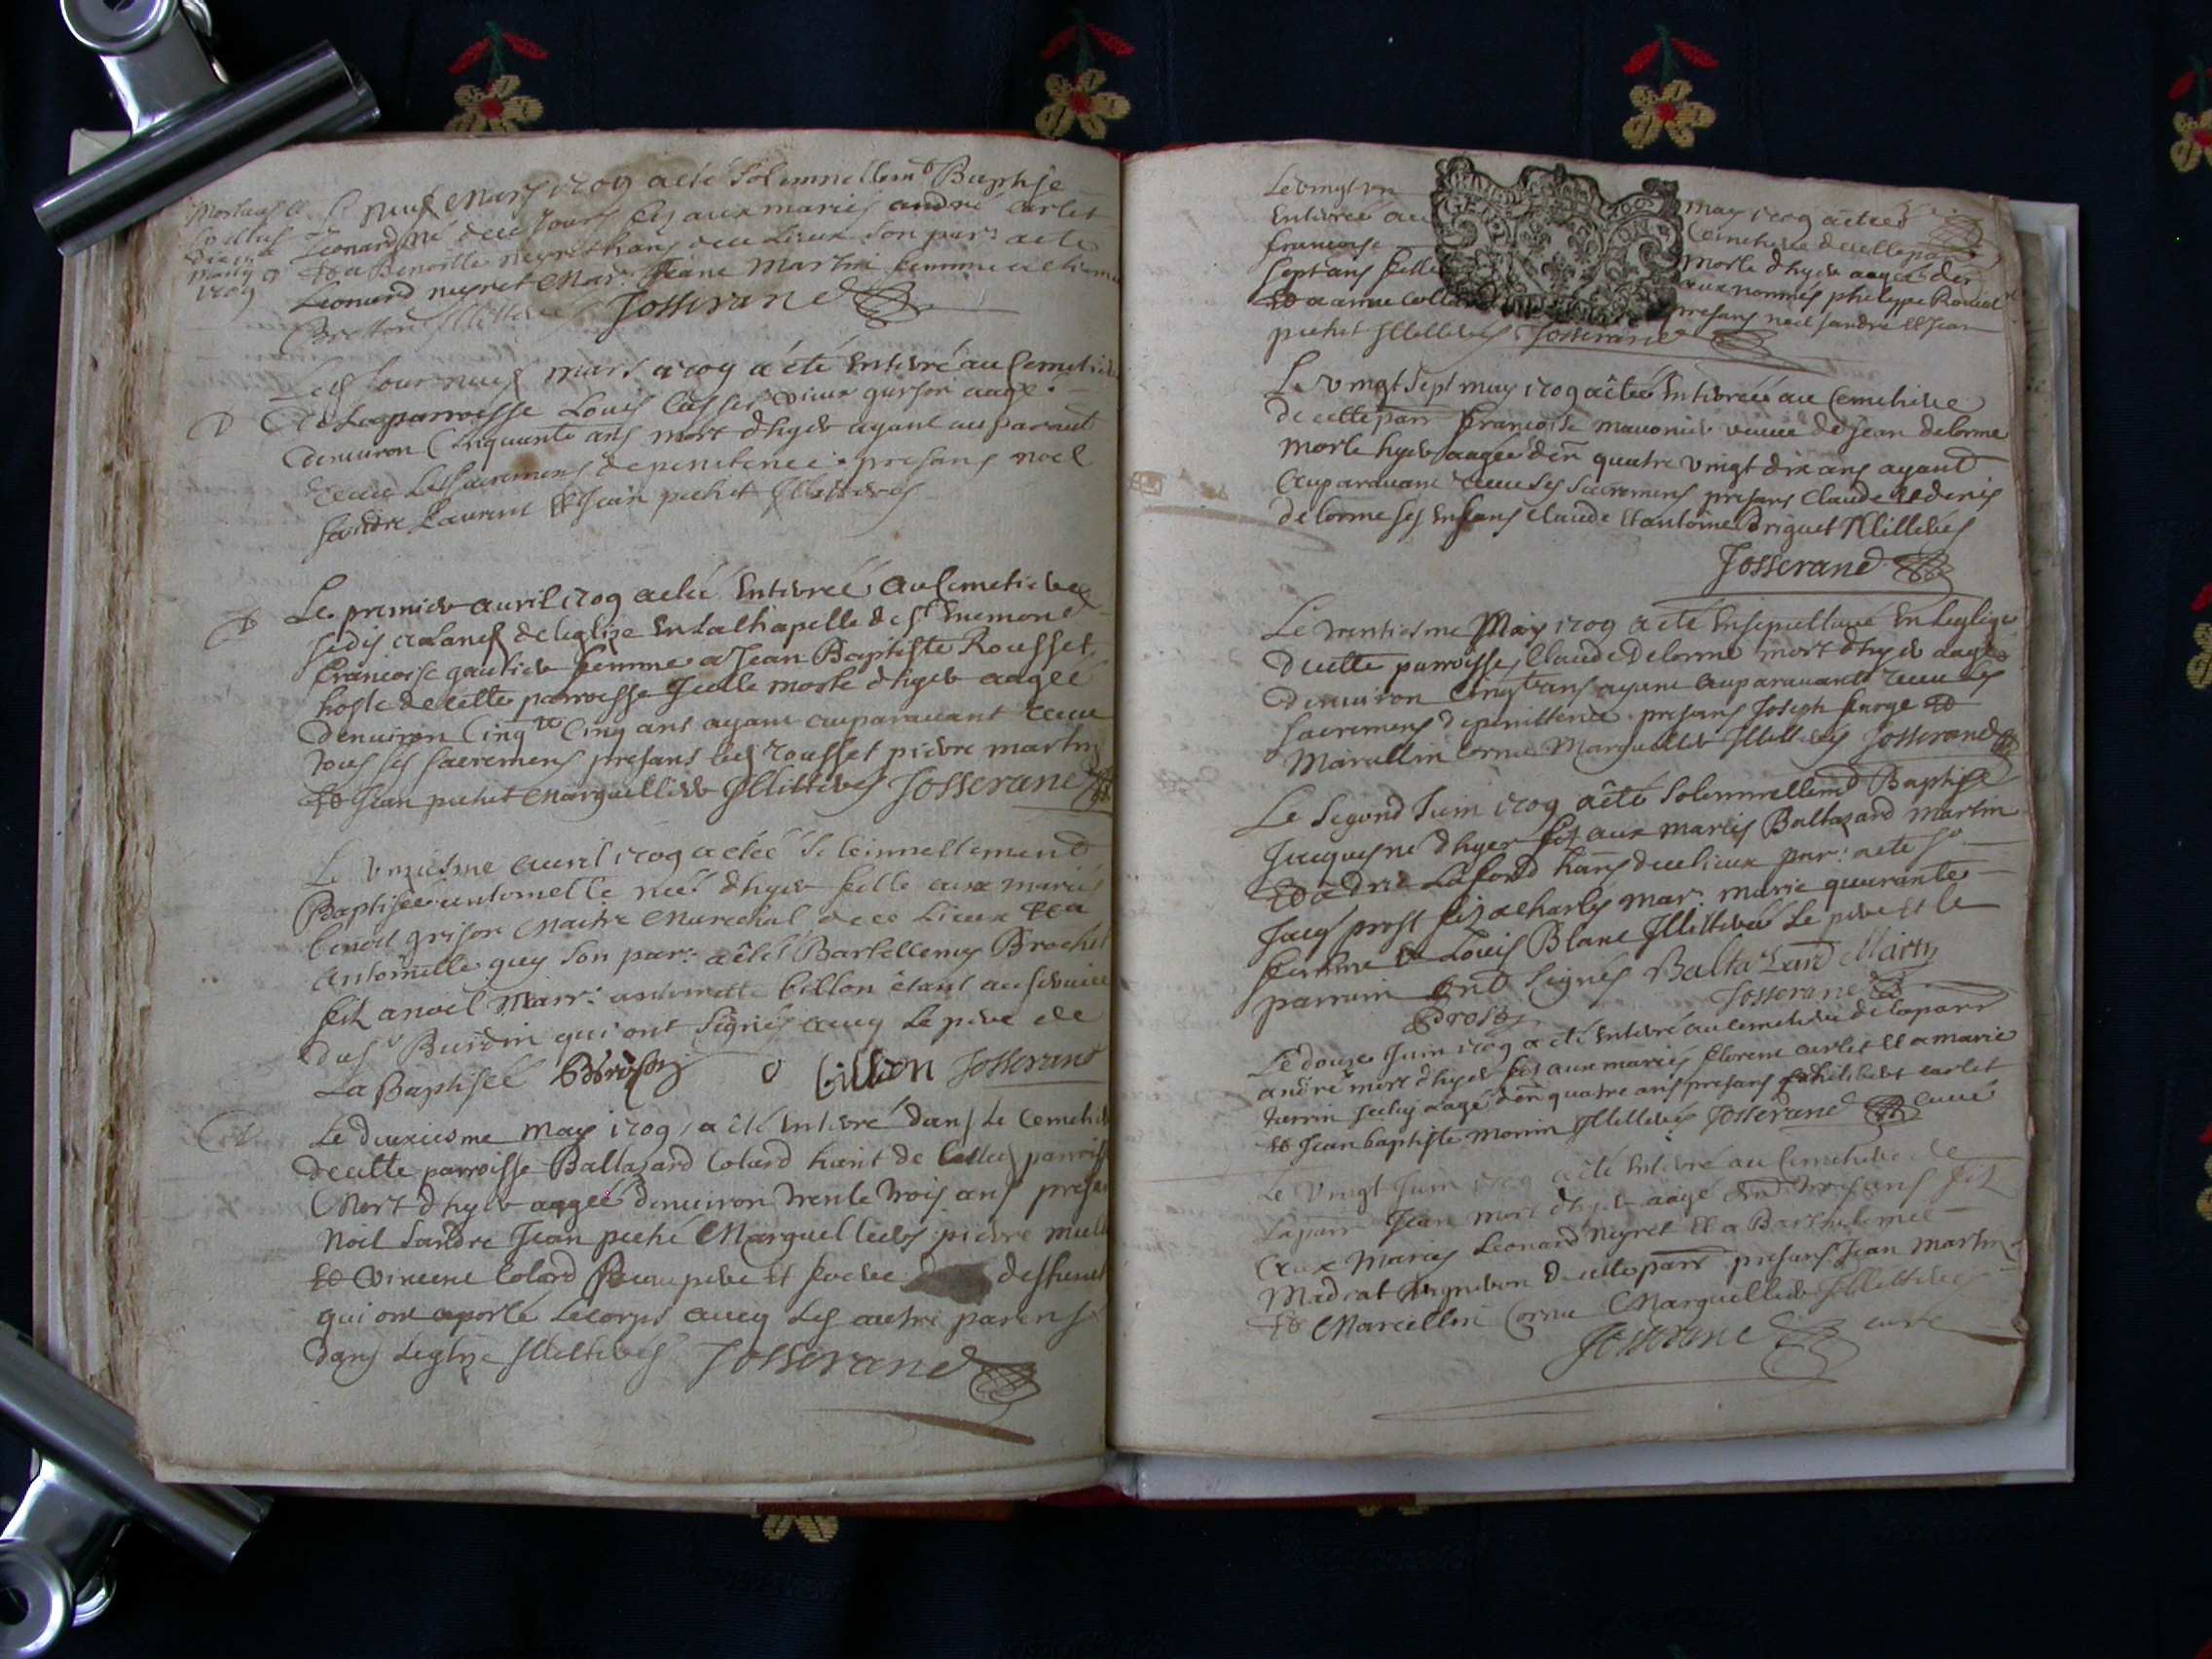 Le neuf Mars 1709 a eté Solemnellemt Baptise
Leonard né de ce Jour fils aux mariés andré carlet
et a Benoitte neyret hans de ce Lieux son par: a eté
Leonard neyret Mar: Jeane Martin femme a
Bretton Illitteres Josserand
Led Jour neuf mars 1709 a été enterré au Cemetiere
de La parroisse Louis vieux garson aagé
denuiron Cinquante ans mort dhyer ayant auparauant
receu Les sacremens de penitence presans noel
sandre Laurent et Jean pichet Illitteres
Le premier auril 1709 a eté enterreé au Cemetiere
jadis de leglize en La Chapelle de St Enemond
francoise gautier femme a Jean Baptiste Rousset
hoste de cette parroisse Icelle morte dhyer aagee
denuiron Cinqte Cinq ans ayant auparauant receu
tous ses sacremens presans led rousset pierre martin
et Jean pichet Marguellier Illitteres Josserand
Le unziesme auril 1709 a eteé Soleinnellement
Baptiseé antoinette neé dhyer fille aux mariés
benoit grison Maitre Marechal de ce Lieux et a
Antoinette guy Son par: a êtét Bartellemy Brochet
fils a noel Marr: antoinette billon êtant au seruice
du sr Burdin qui ont Signés auec Le pere de
La Baptiseé billion Josserand
Le deuxiesme may 1709 a êté enterré dans Le Cemetiere
de cette parroisse Baltazard Colard hant de parroisse
Mort dhyer aageé denuiron trente trois ans presans
Noel Sandre Jean piché Marguelliers pierre
et Vincent Colard pere et frere deffunct
qui ont aporté Le corps auec Les autre parens
dans Leglize Illitteres Josserand
Le vingt un may 1709 a êteé
enterreé au Cemetiere de cette parr
francoise morte dhyer aageé den
sept ans fille aux nommés philippe
et a anne Collard presans noel sandre et Jean
pichet Illitteres Josserand
Le vingt sept may 1709 a êteé enterreéé au Cemetiere
de cette parr francoise veuue de Jean delorme
morte hyer aageé den quatre vingt dix ans ayant
auparauant receu Les Sacremens presans Claude et denis
delorme ses enfans Claude et antoine Briguet Illitteres
Josserand
Le trentiesme May 1709 a eté ensepulturé en Leglize
de cette parroisse Claude Delorme mort dhyer aagé
denuiron Cinqte ans ayant auparauant receu Les
sacremens de penittence presans Joseph farge et
Marcellin Cornu Marguellier Illitteres Josserand
Le Segond Juin 1709 a êté Solemnellemd Baptise
Jacques né dhyer fils aux mariés Baltazard Martin
et a hans de ce lieux par: a ete sr
Jacq prost fils a Charles mar: marie quarante
femme a Louis Blanc Illitterée Le pere et Le
parrain ont Signés Baltazard Martin
Prost Josserand
Le douze Juin 1709 a eté enterré au cemetiere de la parr
andré mort dhyer fils aux mariés florent carlet et a marie
aagé den quatre ans presans carlet
et Jean baptiste monin Illitteres Josserand curé
Le Vingt Juin 1709 a eté enterré au Cemetiere de
La parr Jean mort dhyer aagé den trois ans fils
aux Mariés Leonard Neyret et a Barthelemie
Madrat de cette parr presans Jean Martin
et Marcellin Cornu Marguellier Illitteres
Josserand curé